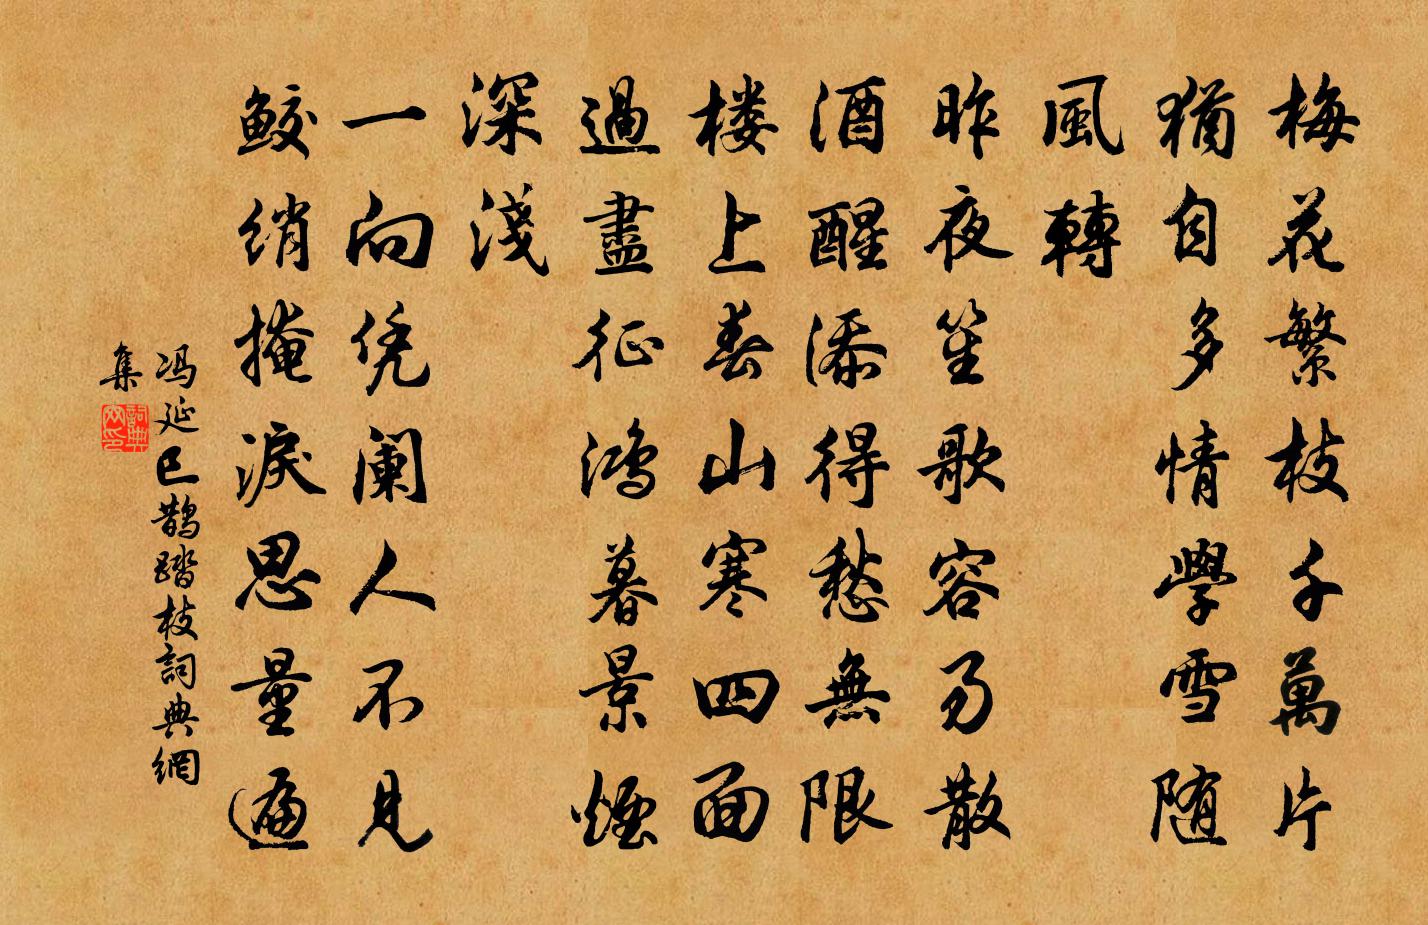 梅花繁枝千萬片
猶自多情學雪随
風轉
昨夜笙歌容易散
酒醒添得愁無限
楼上春山寒四面
過盡征鴻暮景煙
深淺
一向凭阑人不見
鲛绡掩淚思量遍
冯延巳鹊踏枝詞典網
集
詞典网印